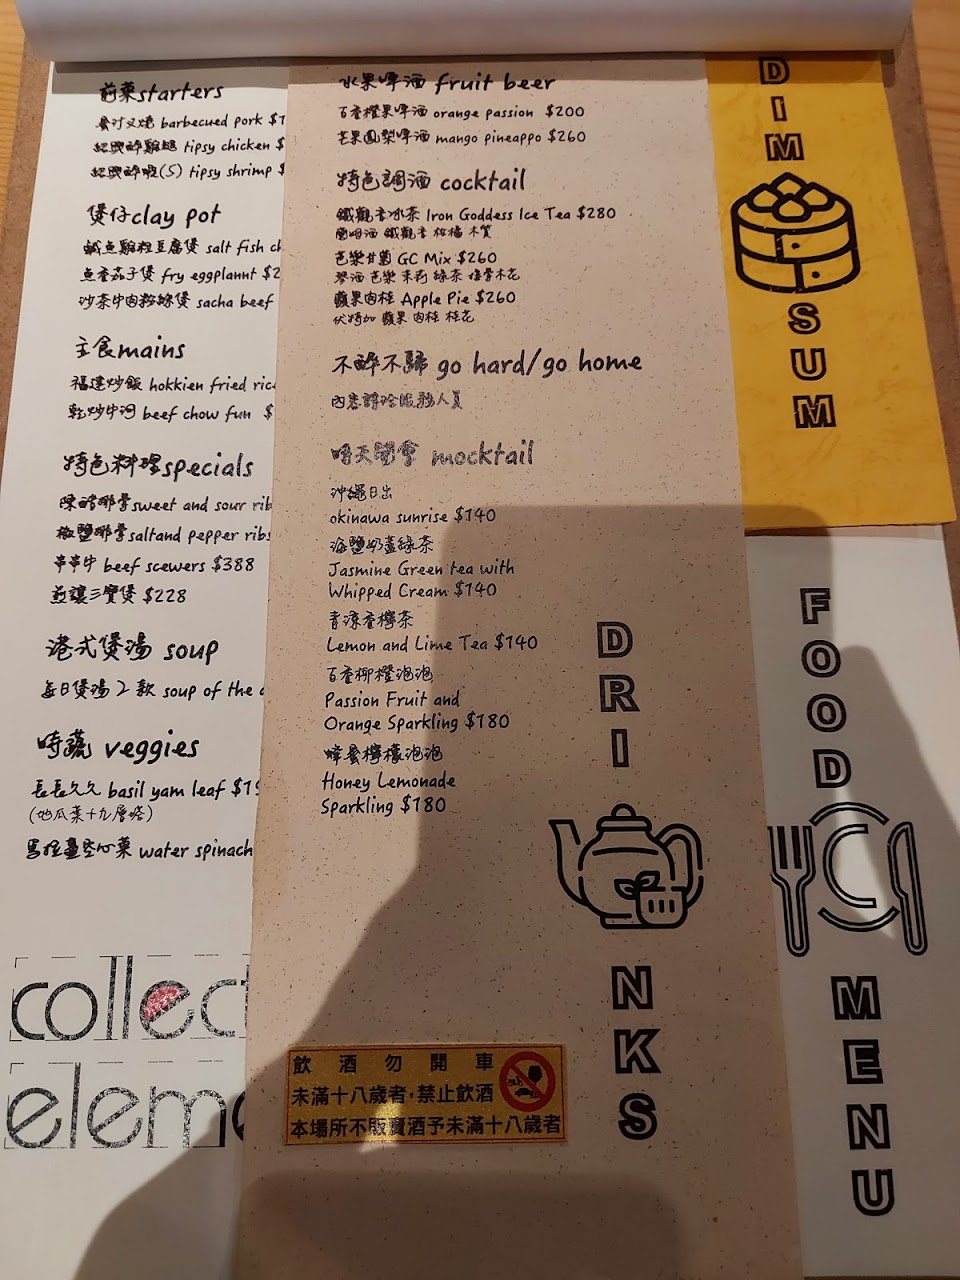 前菜starters
蜜汁叉燒 barbecued pork $1
紹興醉雞腿 tipsy chicken $
紹興醉蝦(5) tipsy shrimp $
煲仔clay pot
鹹魚雞粒豆腐煲 salt fish ch
魚香茄子煲 fry eggplannt $2
沙茶牛肉粉絲煲 sacha beef
主食mains
福建炒飯 hokkien fried rice
乾炒牛河 beef chow fun $
特色料理specials
sweet and sour rib
椒鹽排骨saltand pepper ribs
串串牛 beef scewers $388
煎讓三寶煲 $228
港式煲湯 soup
每日煲湯2款 soup of the d
時蔬 veggies
長長久久 basil yam leaf $19
(地瓜葉+九層塔)
馬拉盞空心菜 water spinach
collect
eleme
水果啤酒 fruit beer
百香橙果啤酒 orange passion $200
芒果鳳梨啤酒 mango pineappo $260
特色調酒 cocktail
鐵觀音冰茶 Iron Goddess Ice Tea $280
蘭姆酒 鐵觀音 柑橘 木質
芭樂甘菊 GC Mix $260
琴酒 芭樂 茉莉 綠茶 接骨木花
蘋果肉桂 Apple Pie $260
伏特加 蘋果 肉桂 桂花
不醉不歸 go hard/go home
內容請洽服務人員
mocktail
沖繩日出
okinawa sunrise $140
海鹽奶蓋綠茶
Jasmine Green tea with
Whipped Cream $140
青涼香檸茶
Lemon and Lime Tea $140
百香柳橙泡泡
Passion Fruit and
Orange Sparkling $180
蜂蜜檸檬泡泡
Honey Lemonade
Sparkling $180
飲酒勿開車
未滿十八歲者,禁止飲酒
本場所不販賣酒予未滿十八歲者
DRINKS
DIM SUM
FOOD MENU